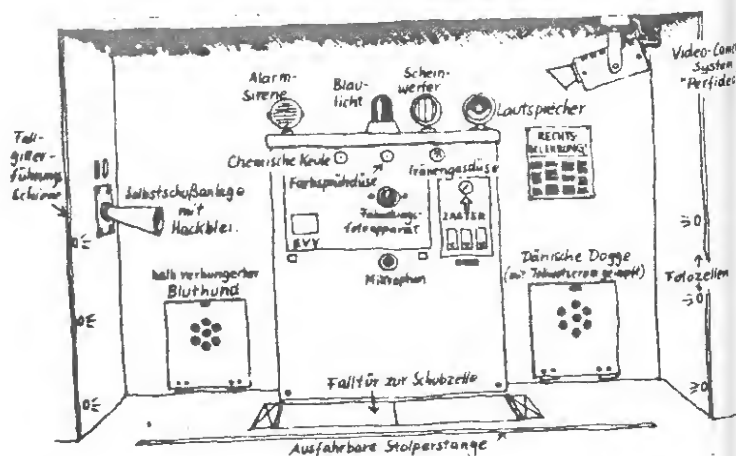 Alarm-
Sirene
Blau-
licht
Schein-
werfer
Lautsprecher
Video-Cam
System
"Perfideo
Fall-
gitter-
führungs
Schiene
Chemische Keule
Farbsprühdüse
Tränengasdüse
RECHTS-
BELEHRUNG
Selbstschußanlage
mit
Hackblei.
Fahndungs-
fotoapparat
ZASTER
BVV
Mikrophon
halb verhungerter
Bluthund
Dänische Dogge
(mit Tollwutserum geimpft)
Fotozellen
Falltür zur Schubzelle
Ausfahrbare Stolperstange